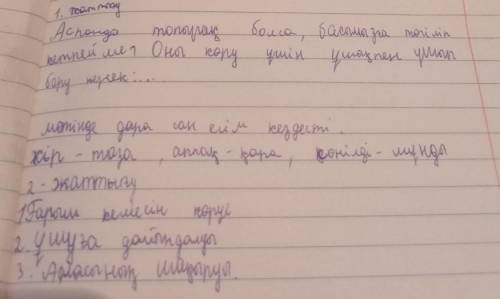 1. жаттығу
Аспанда топырақ болса, басымызға төгіліп
кетпей ме? Оны көру үшін ұшақпен ұшып
бару керек...
мәтінде дара сан есім кездесті.
кір - таза, аппақ - қара, көңілді - мұңды
2 - жаттығу
1. Ғарыш кемесін көруі
2. Ұшуға дайындалды
3. Апасының шақыруы.